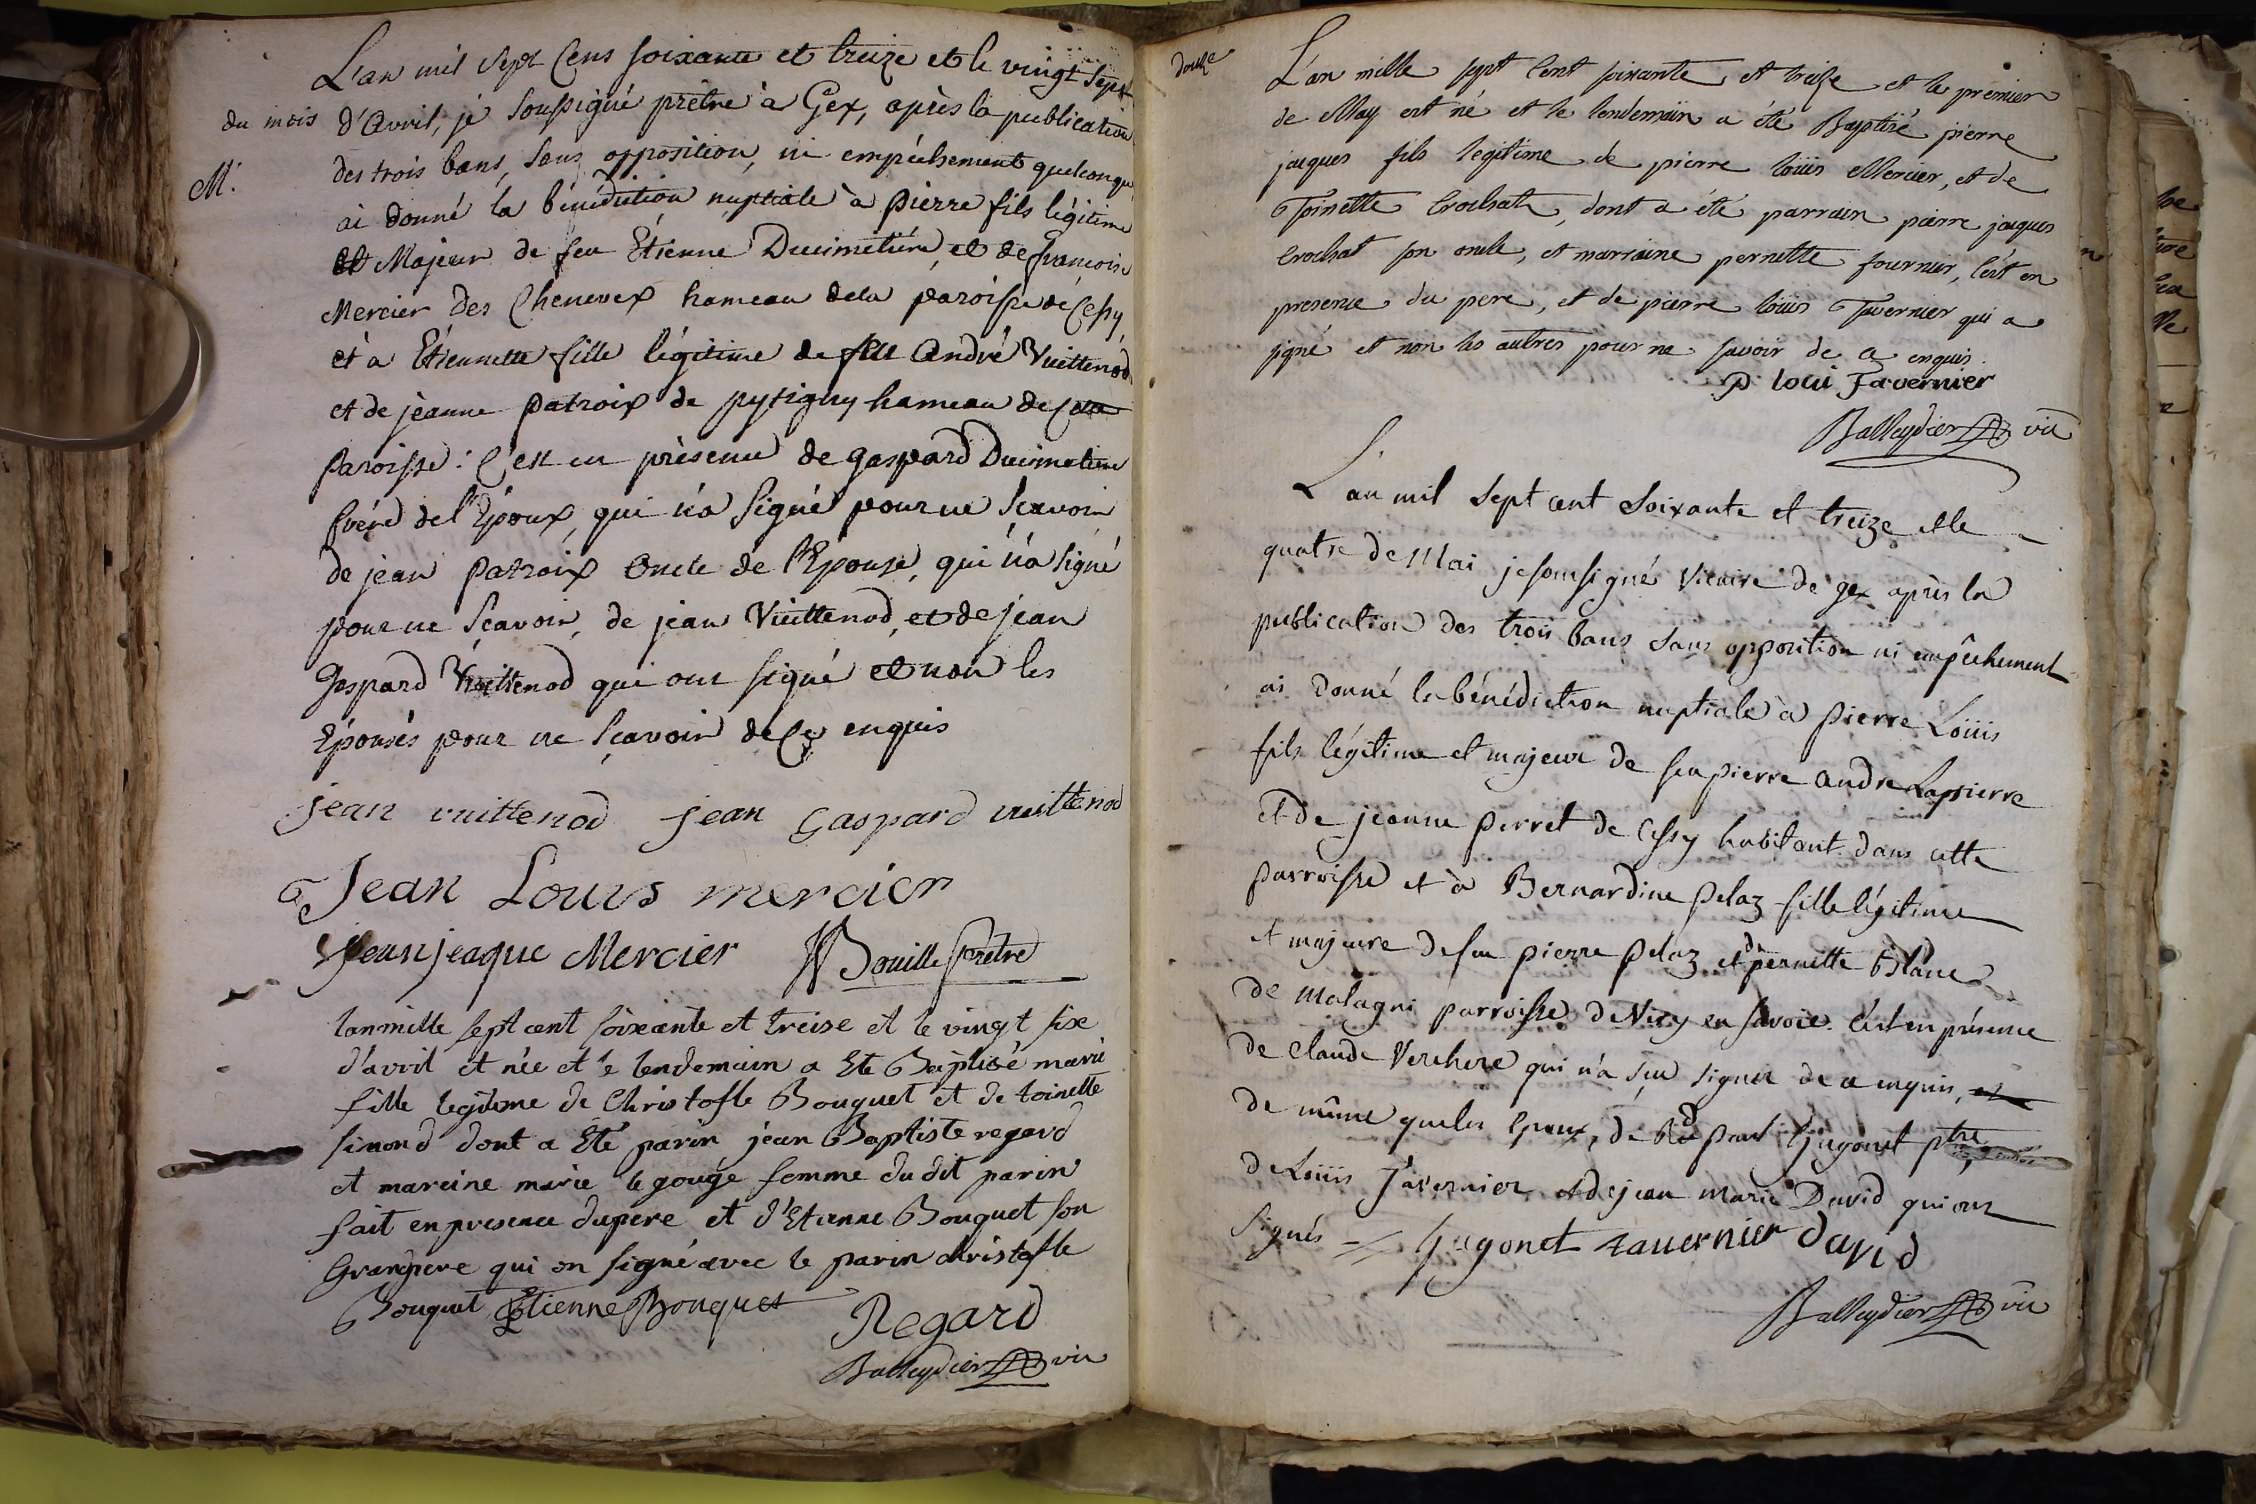 L'an mil sept Cens soixante et treize et le vingt sept
du mois d'Avril, je soussigné prêtre à Gex, après la publication
M. des trois bans, sans opposition, ni empêchement quelconque
ai donné la bénédiction nuptiale à pierre fils légitime
et Majeur de feu Étienne Ducimetiére, et de françoise
Mercier des Chenevex hameau de la paroisse de Cessy,
et à Étiennette fille légitime de feu André Vuittenod
et de jeanne patroix de pytigny hameau de cette
paroisse : C'est en présence de gaspard Ducimetiere
frère de l'Époux, qui n'a signé pour ne sçavoir
de jean patroix Oncle de l'Epouse, qui n'a signé
pour ne sçavoir, de jean Vuittenod, et de jean
gaspard Vuittenod qui ont signé et non les
Épousés pour ne sçavoir de ce enquis
jean vuittenod jean gaspard vuittenod
Jean Louis mercier
jean jeaque Mercier Bouille prêtre
lan mille sept cent soixante et treise et le vingt sixe
d'avril et née et le lendemain a Eté Baptisé marie
fille legitime de Christofle Bouquet et de toinette
simond dont a Eté parin jean Baptiste regard
et mareine marie le gouge femme du dit parin
fait en presence du pere et d'Etienne Bouquet son
Grandpere qui on signé avec le parin christofle
Bouquet Etienne Bouquet Regard
Balleydier vic
douze
L'an mille sept cent soixante et treize et le premier
de May est né et le lendemain a été Baptisé pierre
jaques fils legitime de pierre loüis Mercier, et de
Toinette Crochat, dont a été parrain pierre jaques
Crochat son oncle, et marraine pernette fournier, c'est en
presence du pere, et de pierre loüis Tavernier qui a
signé et non les autres pour ne savoir de ce enquis.
P. loui Tavernier
Balleydier vic
L'an mil sept cent soixante et treize et le
quatre de Mai je soussigné Vicaire de gex après la
publication des trois bans sans opposition ni empêchement
ai donné la bénédiction nuptiale à pierre Loüis
fils légitime et majeur de feu pierre andre Lapierre
et de jeanne perret de Cessy habitant dans cette
parroisse et à Bernardine pelaz fille légitime
et majeure de feu pierre pelaz et de pernette Blanc
de Malagni parroisse de Viry en savoie. C'est en présence
de Claude Verchere qui n'a sçu signer de ce enquis,
de même que les époux, de Rd paul Gugonet ptre,
de Loüis Tavernier et de jean marie David qui ont
signés Gugonet tauernier david
Balleydier vic